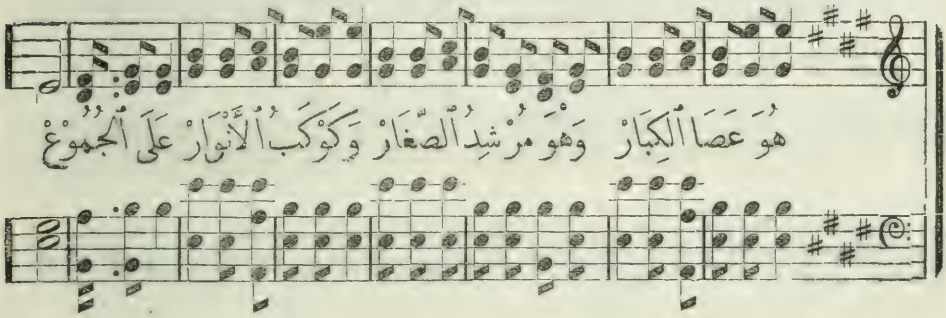 هُوَ عَصَا ٱلْكِبَارْ وَهْوَ مُرْشِدُ ٱلصِّغَارْ وَكَوْكَبُ ٱلْأَنْوَارْ عَلَى ٱلْجُمُوعْ